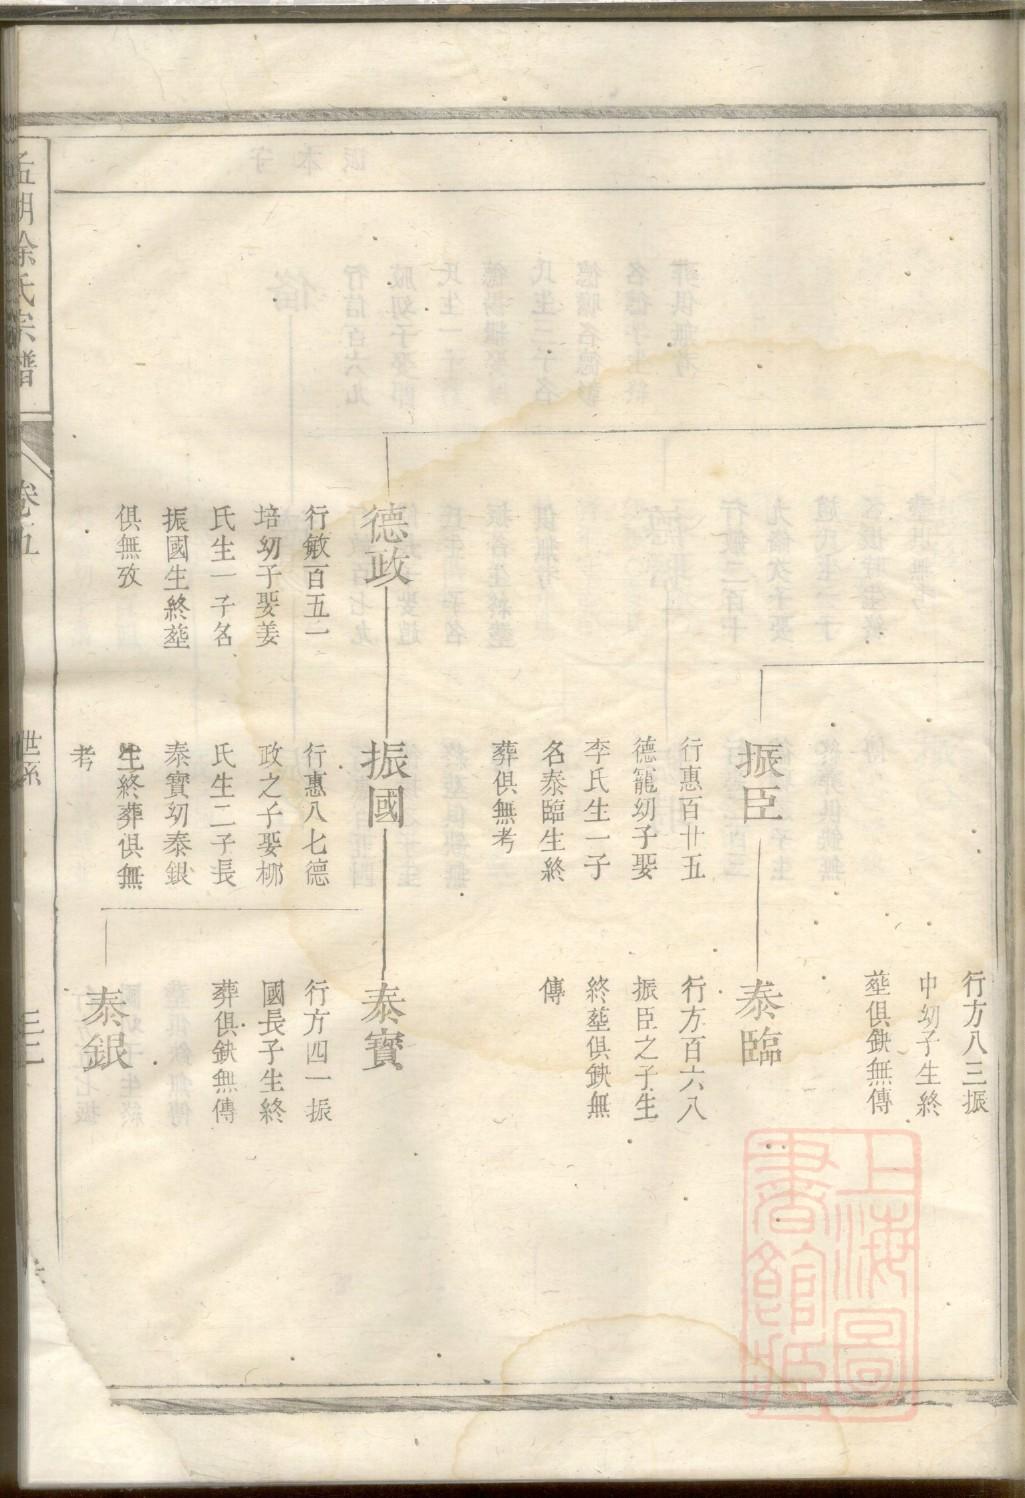 行方八三振
中幼子生終
塟俱鈌無傳
振臣
行惠百廿五
德寵幼子娶
李氏生一子
名泰臨生終
葬俱無考
泰臨
行方百六八
振臣之子生
終塟俱鈌無
傳
德政
行敏百五一
培幼子娶姜
氏生一子名
振國生終塟
俱無攷
振國
行惠八七德
政之子娶栁
氏生二子長
泰寶幼泰銀
生終葬俱無
考
泰寶
行方四一振
國長子生終
葬俱鈌無傳
泰銀
徐氏宗譜
卷五
世系
上海圖書館藏